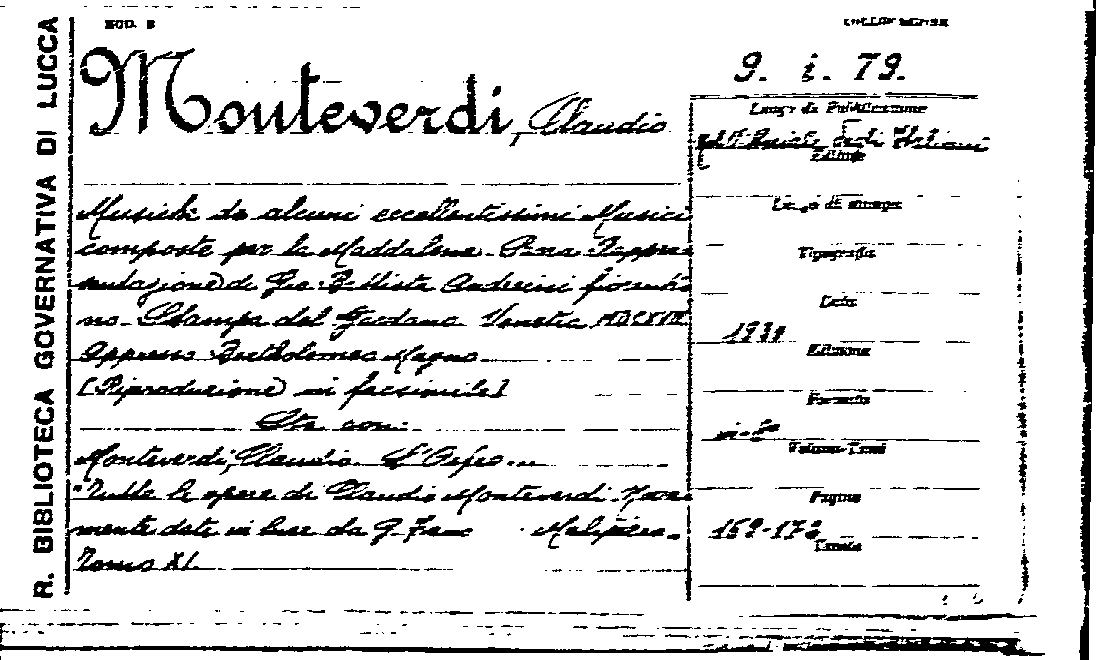 R. BIBLIOTECA GOVERNATIVA DI LUCCA
MOD. B
COLLOCAZIONE
Monteverdi, Claudio
9. i. 79.
Musiche de alcuni eccellentissimi Musici
composte per la Maddalena. Sacra Rappre
sentazione di Gio: Battista Andreini fiorenti
no. Stampa del Gardano Venetia MDCXVII
Appresso Bartholomeo Magno
[Riproduzione in facsimile]
Sta con:
Monteverdi, Claudio. L'Orfeo...
"Tutte le opere di Claudio Monteverdi. Nova
mente date in luce da G. Franc Malipiero.
Tomo XI.
Luogo di Pubblicazione
degli Italiani
Editore
Luogo di stampa
Tipografia
Data
Edizione
Formato
in-
Volume-Tomi
Pagine
Tavole